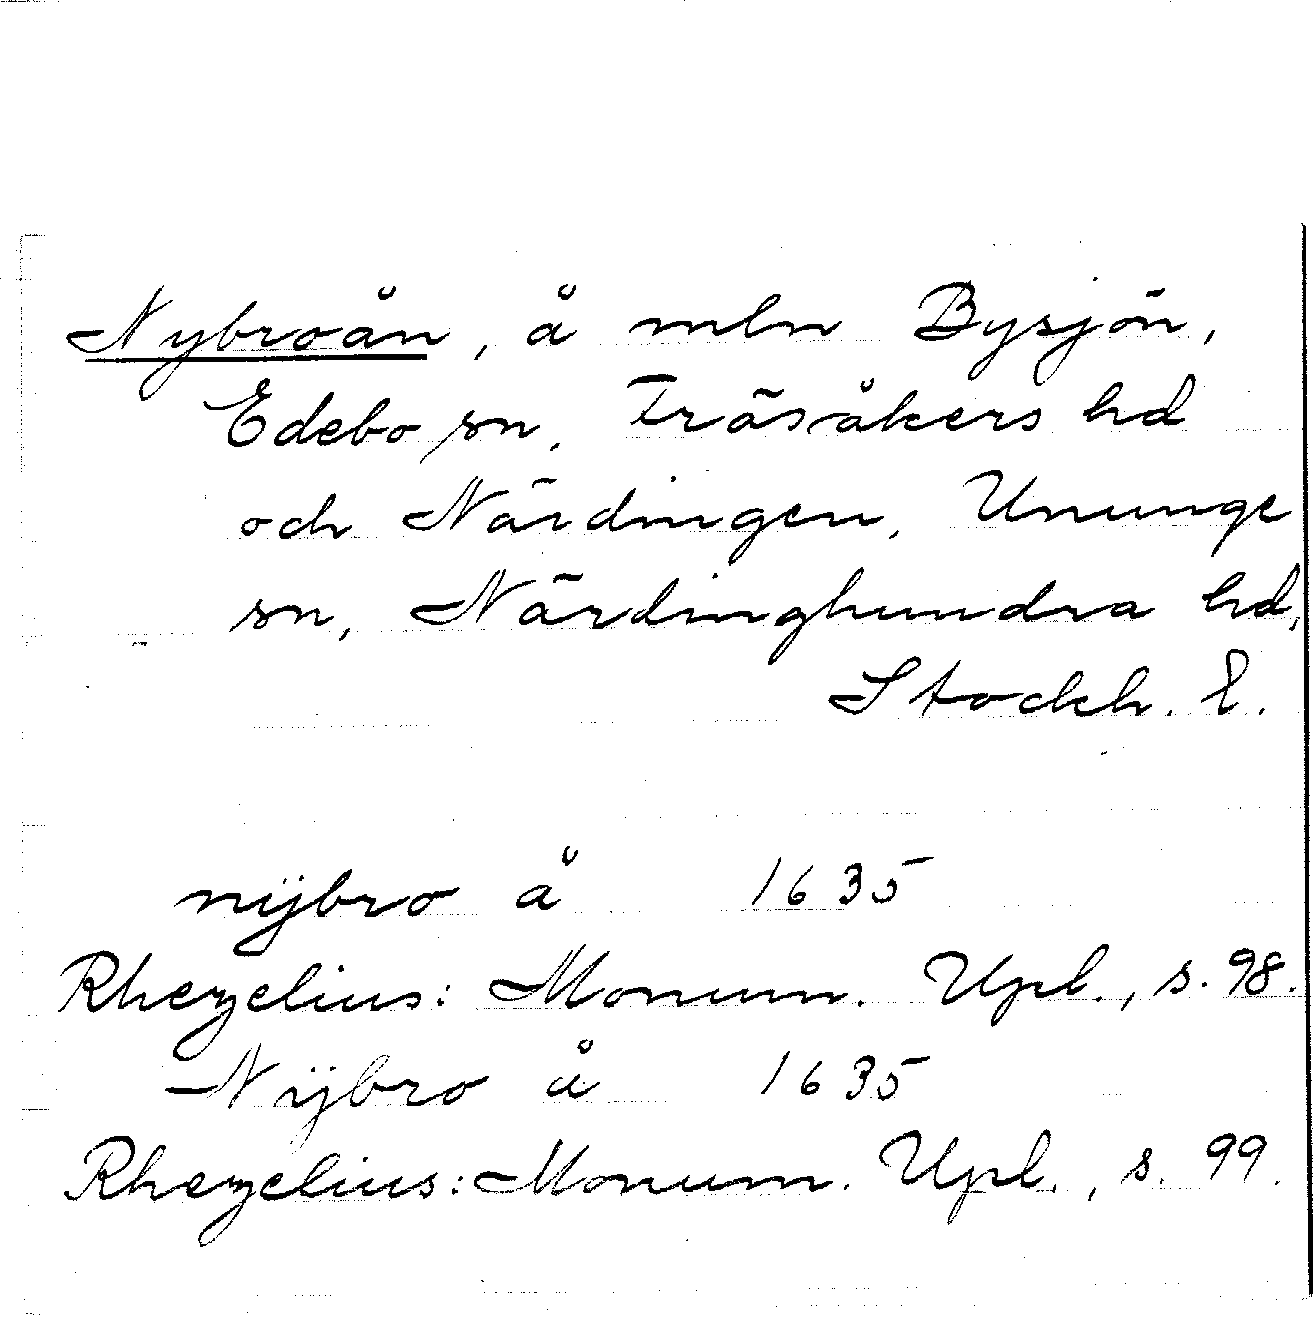 Nybroån, å mln Bysjön,
Edebo sn, Frösåkers hd
och Närdingen, Ununge
sn, Närdinghundra hd,
Stockh. l.
nÿbro å 1635
Rhezelius: Monum. Upl., s. 98.
Nÿbro å 1635
Rhezelius: Monum. Upl., s. 99.